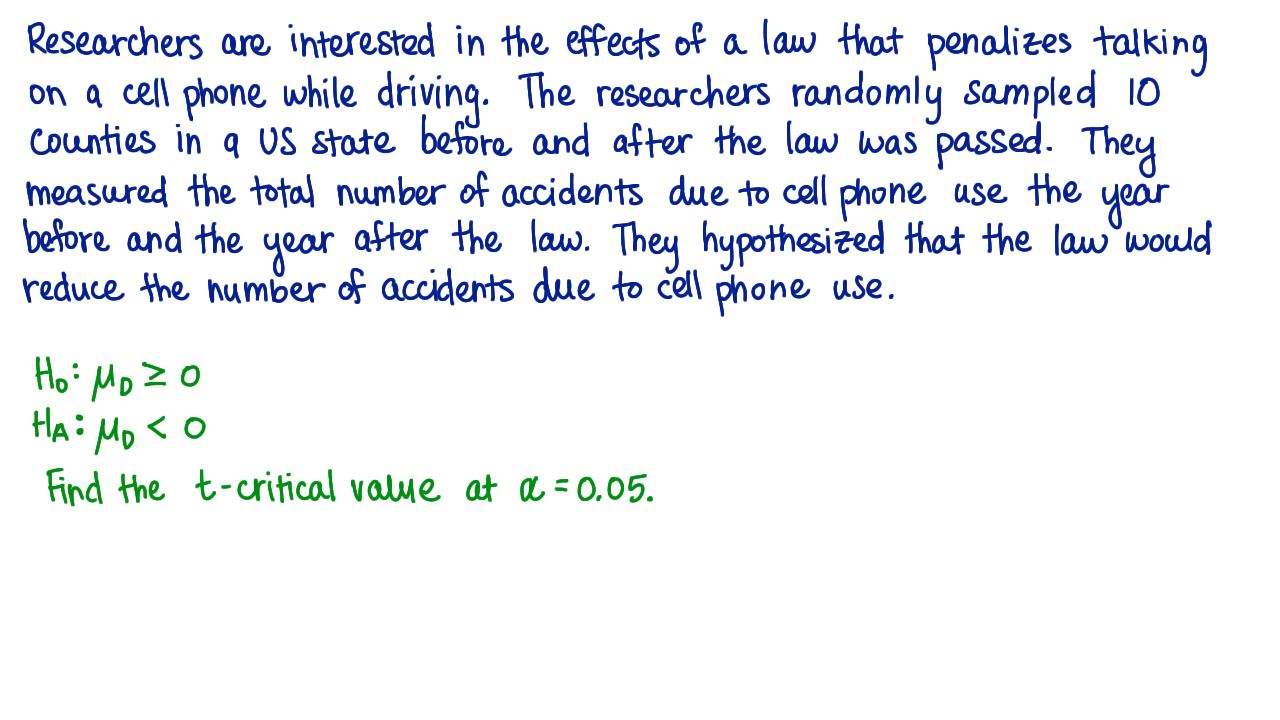 Researchers are interested in the effects of a law that penalizes talking
on a cell phone while driving. The researchers randomly sampled 10
counties in a US state before and after the law was passed. They
measured the total number of accidents due to cell phone use the year
before and the year after the law. They hypothesized that the law would
reduce the number of accidents due to cell phone use.
H₀: μ_D ≥ 0
H_A: μ_D < 0
Find the t-critical value at α = 0.05.